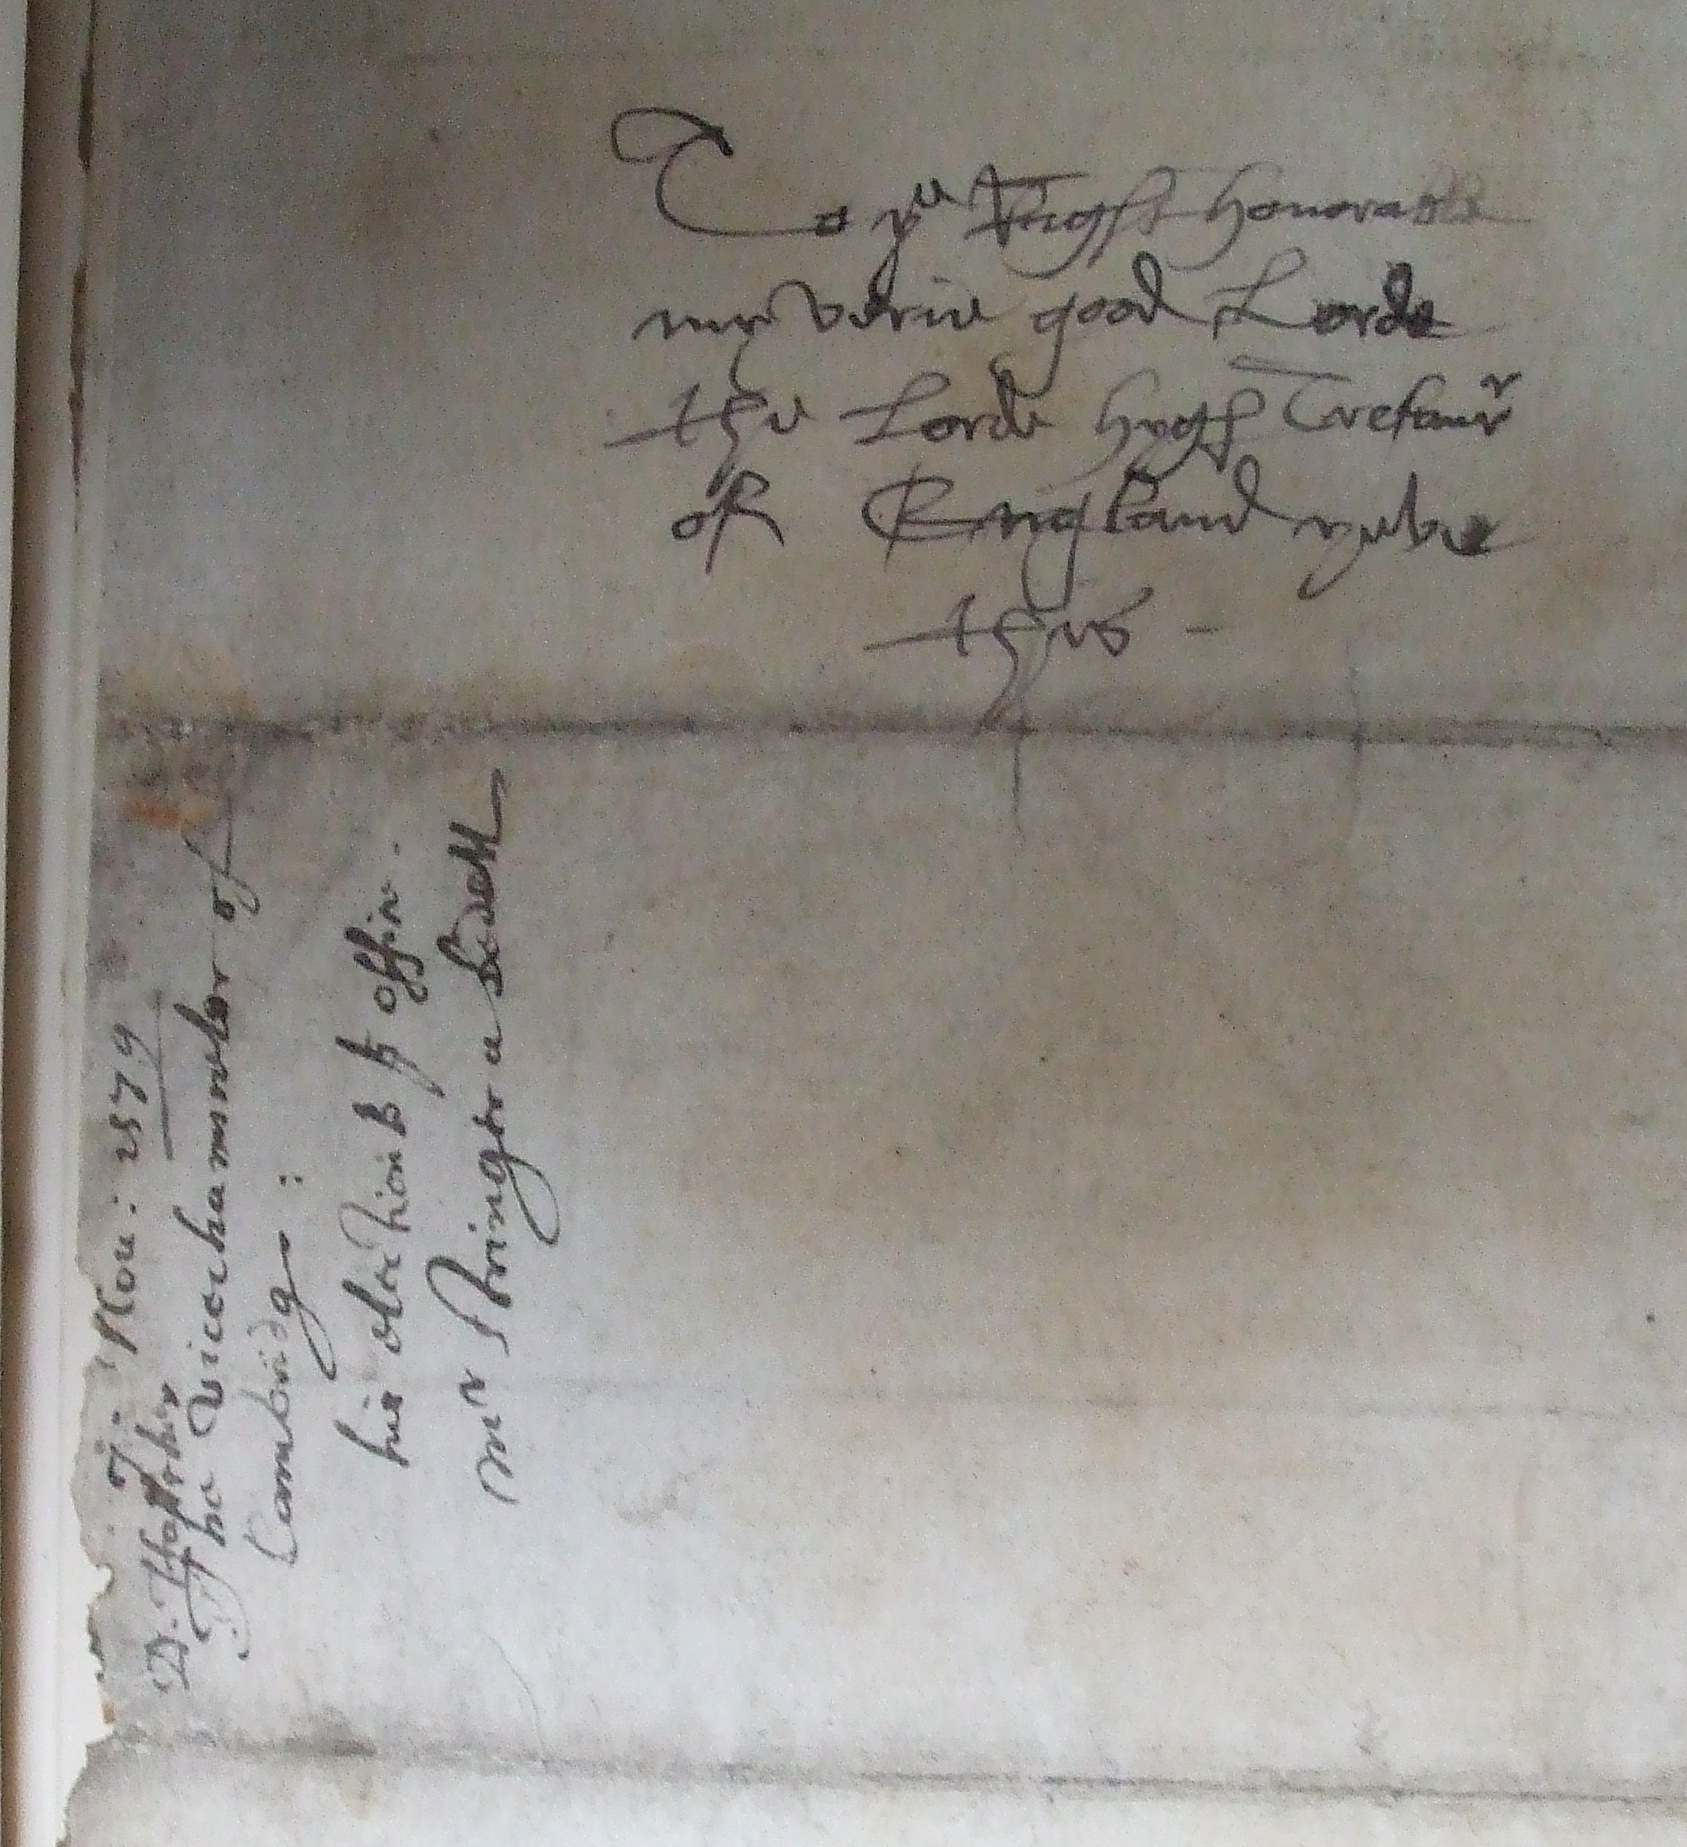 To ye Right honorable
my verie good Lorde
the Lorde hygh Tresaurr
of England yeve
thes -
7: Nou: 1579
D. Hatcher
the vicechamceler of
Cambridge:
his electionb to office.
mr Stringer a bedell